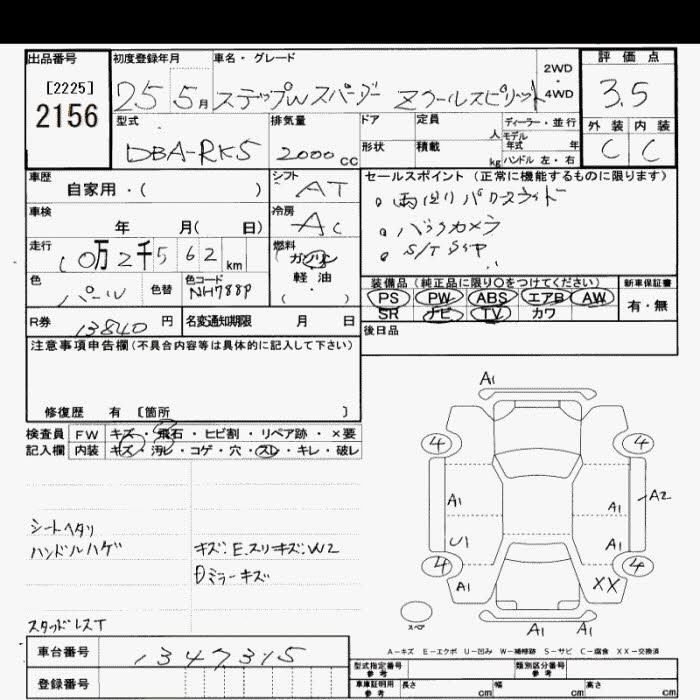 出品番号
[2225]
2156
初度登録年月
25 5月
車名・グレード
ステップWスパーダー Zクールスピリット
2WD・4WD
評価点
3.5
外装 内装
C C
型式
DBA-RK5
排気量
2000cc
ドア
形状
定員 人
積載 kg
ディーラー・並行
モデル年式 年
ハンドル 左・右
車歴
自家用・( )
シフト
AT
車検
年 月( 日)
冷房
AC
走行
10万2千562km
燃料
ガソリン
軽油
( )
色
パール
色替
色コード
NH788P
R券
13840円
名変通知期限 月 日
セールスポイント(正常に機能するものに限ります)
。両側パワースライド
。バックカメラ
装備品(純正品に限り○をつけてください)
PS PW ABS エアB AW
SR ナビ TV カワ
新車保証書
有・無
後日品
注意事項申告欄(不具合内容等は具体的に記入して下さい)
修復歴 有 [箇所 ]
検査員記入欄
FW キズ・飛石・ヒビ割・リペア跡・×要
内装 キズ・汚レ・コゲ・穴・スレ・キレ・破レ
シートヘタリ
ハンドルハゲ
キズ:E.スリキズ:W2
Dミラーキズ
スタッドレスT
A1
4 4
A1 A1 A2
U1 A1
4 4
A1 XX
スペア
A1 A1
A-キズ E-エクボ U-凹み W-補修跡 S-サビ C-腐食 XX-交換済
車台番号
1347315
登録番号
型式指定番号 参考
類別区分番号 参考
車庫証明用 参考
長さ cm 幅 cm 高さ cm